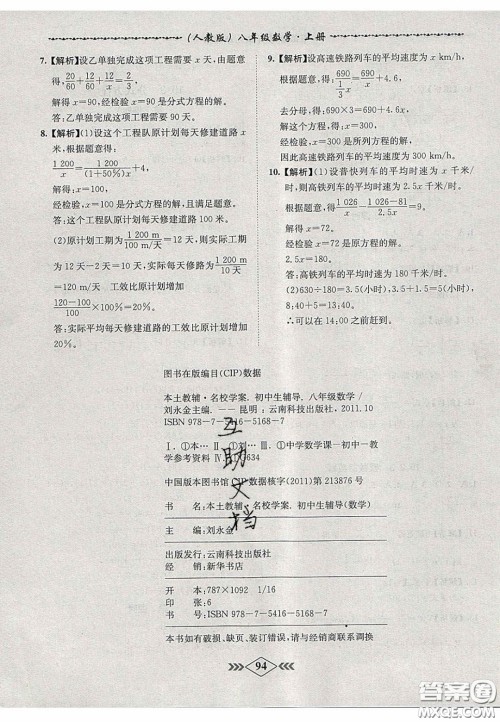 (人教版)八年级数学·上册
7.【解析】设乙单独完成这项工程需要 x 天,由题意
得:20/60+12/60+12/x=2/3,
解得 x=90,经检验 x=90 是分式方程的解.
答:乙单独完成这项工程需要 90 天.
8.【解析】(1)设这个工程队原计划每天修建道路 x
米,根据题意得:
1 200/x=1 200/(1+50%)x+4,
解得:x=100,
经检验 x=100 是分式方程的解,且满足题意.
答:这个工程队原计划每天修建道路 100 米.
(2)原计划工期为1 200 m/100 m/天=12 天,则实际用了
12 天-2 天=10 天,实际每天施工为1 200 m/10 天
=120 m/天 工效比原计划增加
120-100/100×100%=20%.
答:实际平均每天修建道路的工效比原计划增加
20%.
9.【解析】设高速铁路列车的平均速度为 x km/h,
根据题意,得:690/x=690/(1/3x)+4.6,
去分母,得:690×3=690+4.6x,
解得:x=300,
经检验,x=300 是所列方程的解,
因此高速铁路列车的平均速度为 300 km/h.
10.【解析】(1)设普快列车的平均时速为 x 千米/
时,根据题意得:1 026/x-1 026-81/2.5x=9,
解得:x=72,
经检验,x=72 是原方程的解.
2.5x=180,
答:高铁列车的平均时速为 180 千米/时.
(2)630÷180=3.5(小时),8+3.5+1.5=13(小时).
∴可以在 14:00 之前赶到.
图书在版编目(CIP)数据
本土教辅·名校学案.初中生辅导.八年级数学/
刘永金主编.--昆明:云南科技出版社,2011.10
ISBN 978-7-5416-5168-7
Ⅰ.①本… Ⅱ.①刘… Ⅲ.①中学数学课—初中—教
学参考资料 Ⅳ.634
中国版本图书馆 CIP 数据核字(2011)第 213876 号
书 名:本土教辅·名校学案.初中生辅导(数学)
主 编:刘永金
出版发行:云南科技出版社
经 销:新华书店
开 本:787×1092 1/16
印 张:6
书 号:ISBN 978-7-5416-5168-7
本书如有破损、缺页、装订错误,请与经销商联系调换
互助文档
94
答案圈
MXQE.COM